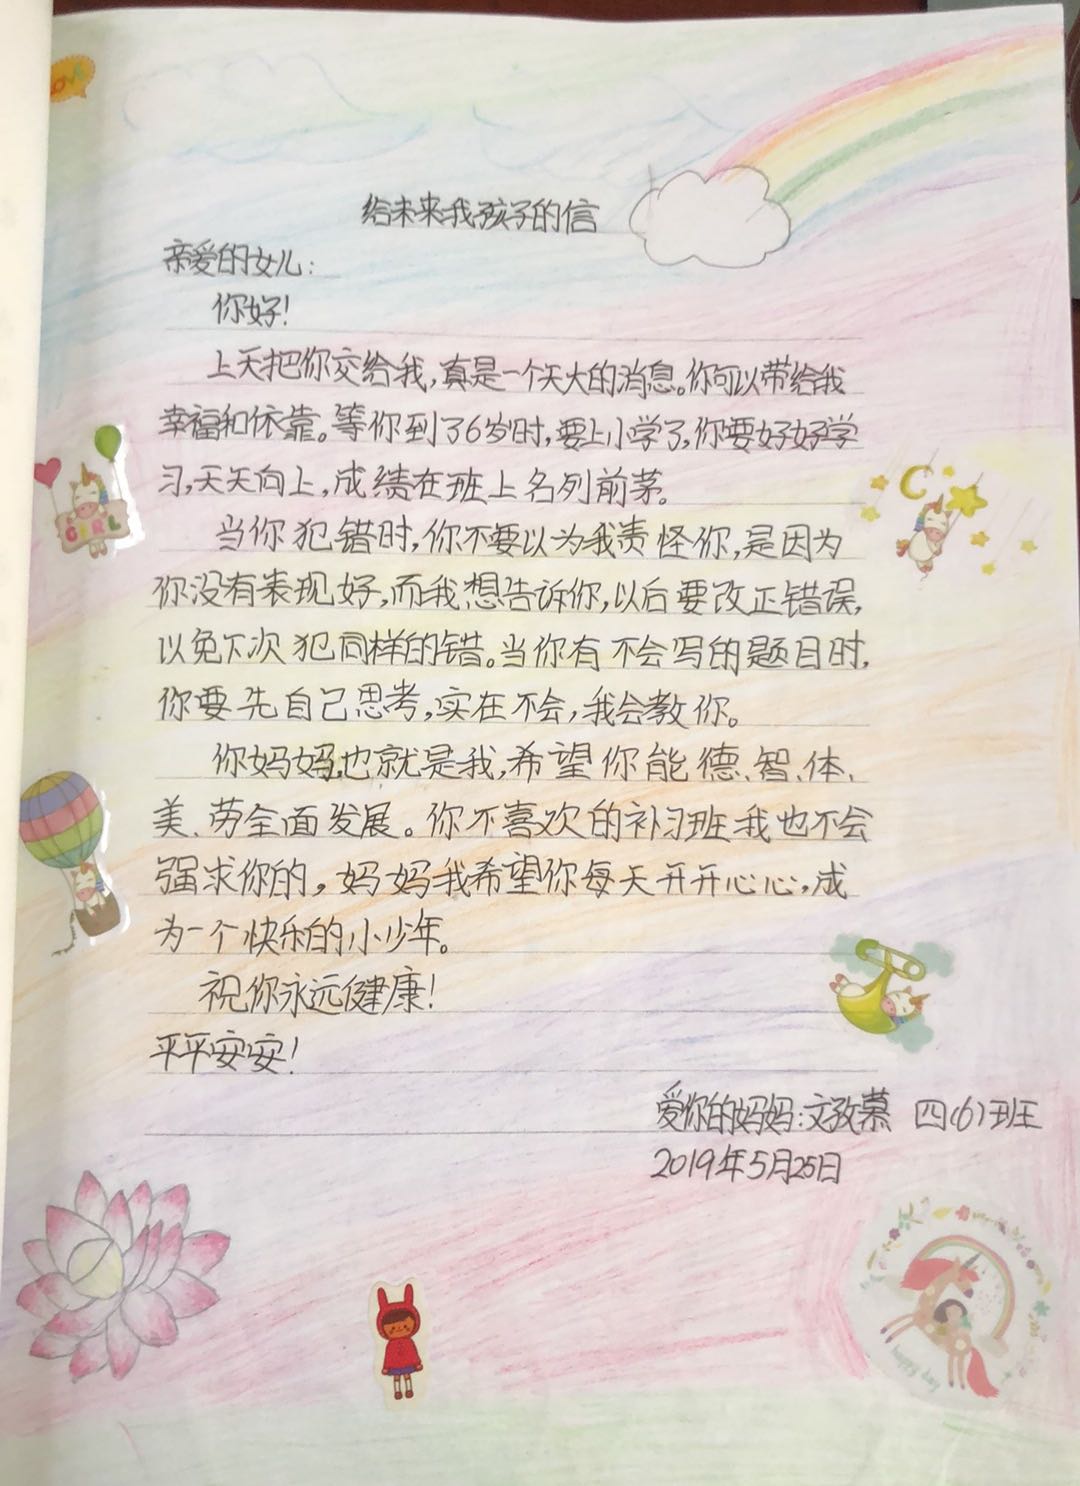 给未来我孩子的信
亲爱的女儿：
你好！
上天把你交给我，真是一个天大的消息。你可以带给我
幸福和依靠。等你到了6岁时，要上小学了，你要好好学
习，天天向上，成绩在班上名列前茅。
当你犯错时，你不要以为我责怪你，是因为
你没有表现好，而我想告诉你，以后要改正错误，
以免下次犯同样的错。当你有不会写的题目时，
你要先自己思考，实在不会，我会教你。
你妈妈，也就是我，希望你能德、智、体、
美、劳全面发展。你不喜欢的补习班我也不会
强求你的，妈妈我希望你每天开开心心，成
为一个快乐的小少年。
祝你永远健康！
平平安安！
爱你的妈妈：文孜慕 四（6）班
2019年5月25日
GIRL
happy day